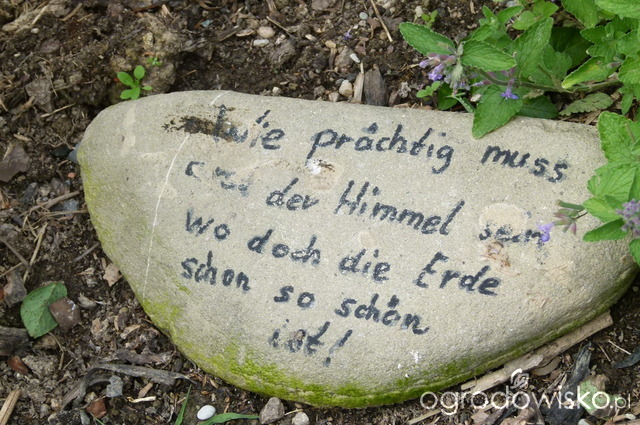 Wie prächtig muss
der Himmel sein
Wo doch die Erde
schon so schön
ist!
ogrodowisko.pl